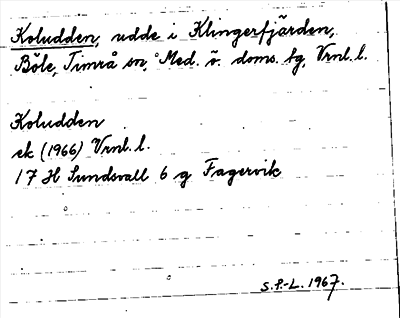 Koludden, udde i Klingerfjärden,
Böle, Timrå sn, Med. ö. doms. fg, Vrnl. l.
Koludden
ek (1966) Vrnl. l.
17 H Sundsvall 6 g Fagervik
S.P.-L. 1967.